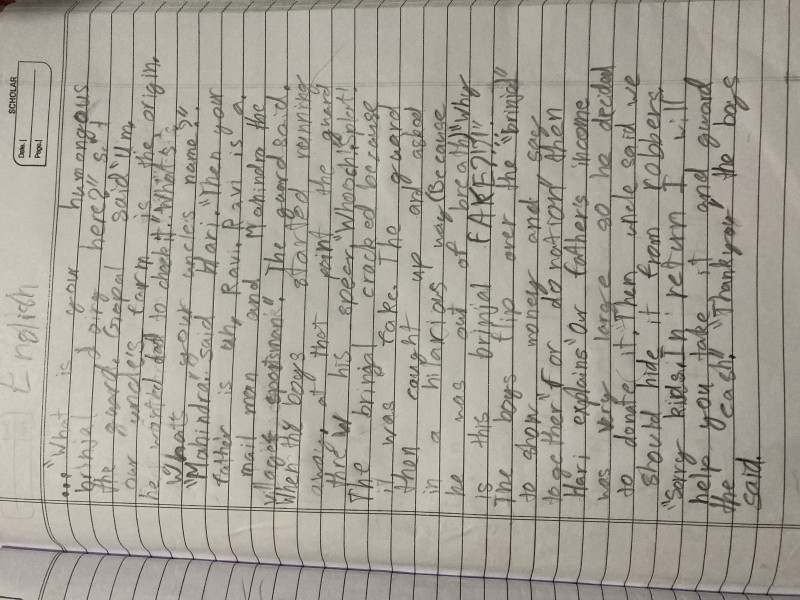 SCHOLAR
Date
Page
English
..."What is your humongous
brinjal doing here?" said
the guard. Gopal said "Um,
our uncle's farm is the origin,
he wanted to check it." "What's
your uncles name?"
"Mahindra." said Hari. "Then your
father is uh, Ravi. Ravi is a
mail man and Mahindra the
village sportsman". The guard said.
When the boys started running
away, at that point the guard
threw his spear "Whoosh! Splat!
The brinjal cracked because
it was fake. The guard
then caught up and asked
in a hilarious way (Because
he was out of breath) "Why
is this brinjal FAKE?!?!"
The boys flip over the "brinjal"
to show money and say
together "For donation" then
Hari explains "Our fathers income
was very large so he decided
to donate it. Then uncle said we
should hide it from robbers.
"Sorry kids. In return I will
help you take it and guard
the cash." "Thankyou" the boys
said.